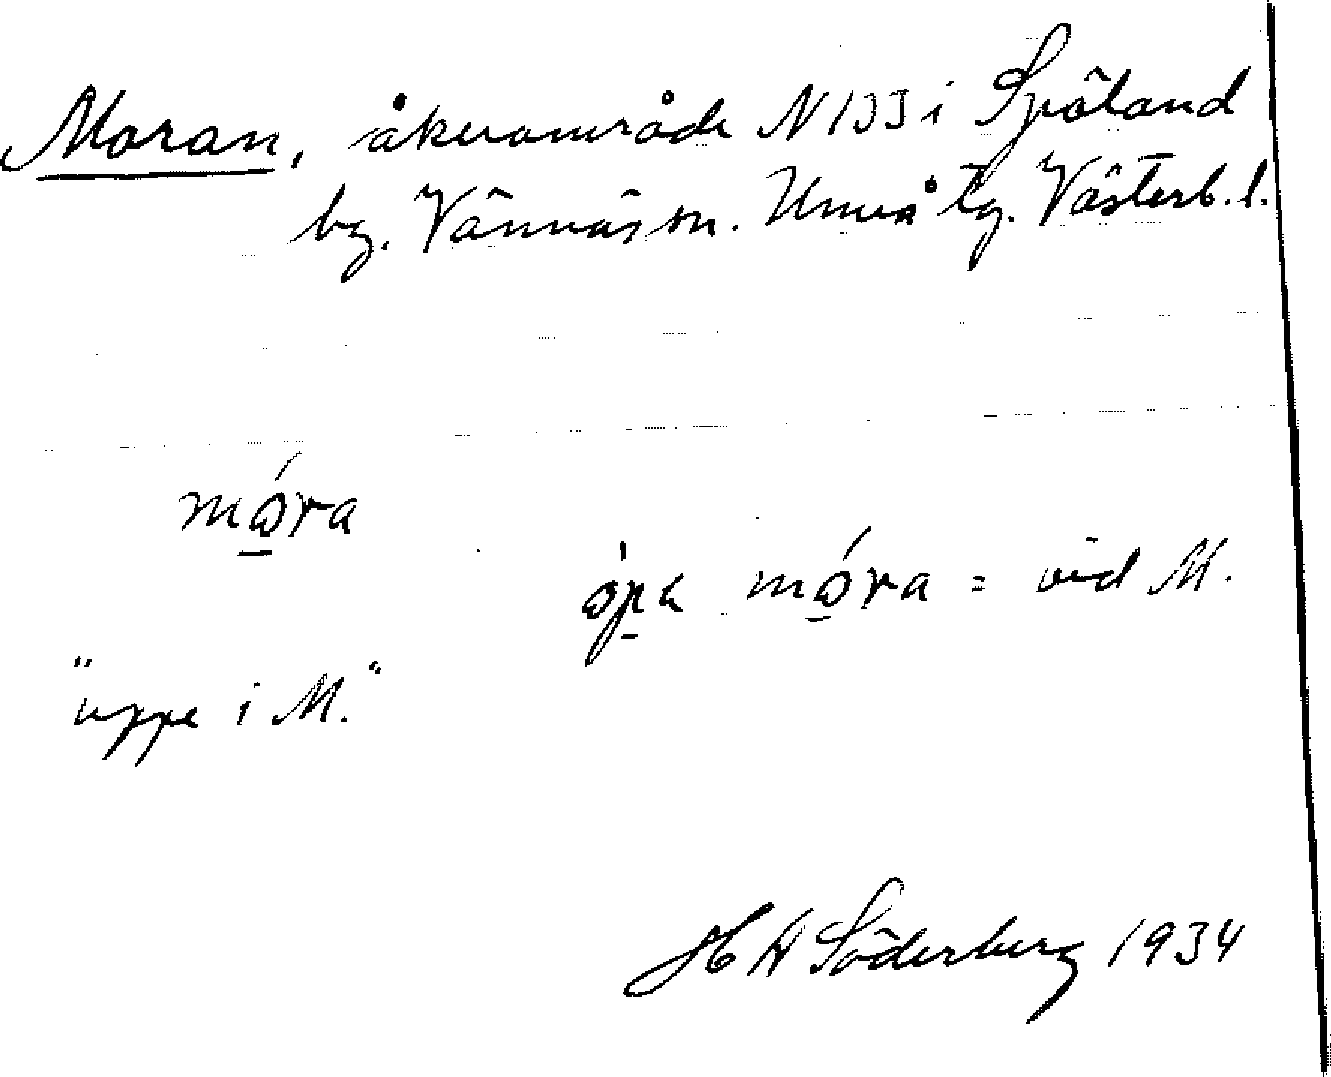 Moran, åkerområde N 133 i Spöland
by. Vännäs sn. Umeå tg. Västerb. l.
mώ̲ra
ώp̲a mώ̲ra = vid M.
"uppe i M."
H A Söderberg 1934